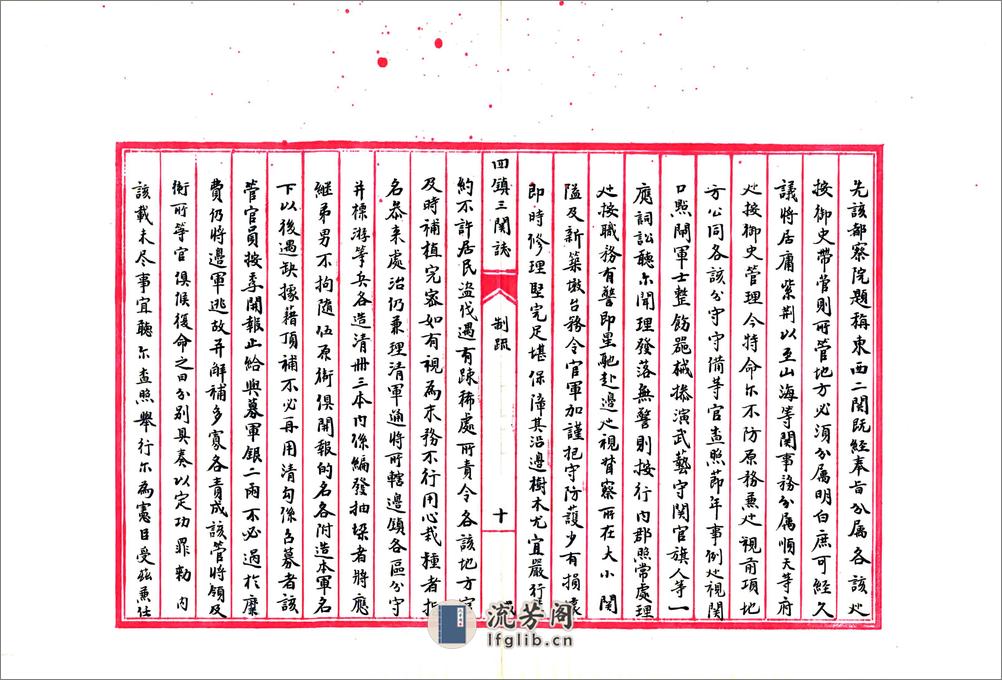 先該都察院題稱東西二関既経奉旨分属各該廵
按御史帶管則所管地方必須分属明白庶可經久
議將居庸紫荆以至山海等関事務分属順天等府
廵按御史管理今特命尔不防原務𠔥廵視前項地
方公同各該分守守備等官查照節年事例廵視関
口㸃閘軍士整飭噐械摻演武藝守関官旗人等一
應詞訟聽尔聞理發落無警則按行内郡照常處理
廵按職務有警即星馳赴邉廵視督察所在大小関
隘及新築墩台務令官軍加謹把守防護少有損壊
即時修理堅完足堪保障其沿邉樹木尤宜嚴行
四鎮三関誌
制疏
十
約不許居民盗伐遇有踈稀處所責令各該地方官
及時補植完宻如有視為末務不行用心栽種者指
名叅来處治仍兼理清軍通將所轄邉鎮各區分守
并標游等兵各造清冊三本内係編發抽垛者將應
継弟男不拘隨伍原衛俱開報的名各附造本軍名
下以後遇缺據籍頂補不必再用清勾係召募者該
管官員按季開報止給與募軍銀二兩不必過扵糜
費仍將邉軍逃故并解補多寡各責成該管將領及
衛所等官俱候復命之日分别具奏以定功罪勅内
該載未尽事宜聽尔查照舉行尔為憲臣受玆𠔥任
流芳阁
lfglib.cn